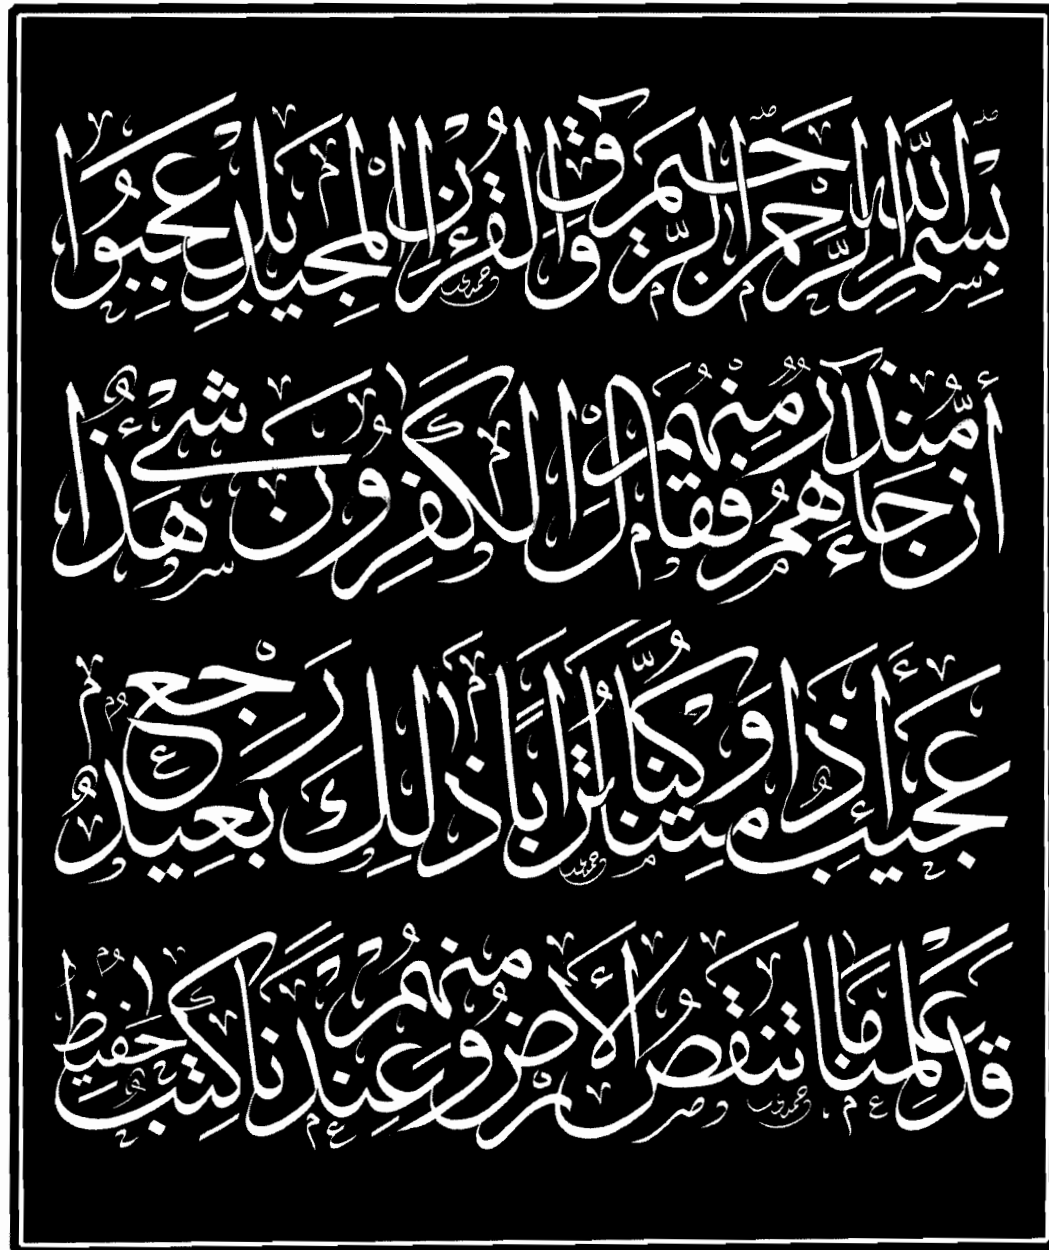 بِسْمِ اللَّهِ الرَّحْمٰنِ الرَّحِيمِ قٓ وَالْقُرْءٰنِ الْمَجِيدِ بَلْ عَجِبُوٓا
أَن جَآءَهُم مُّنذِرٌ مِّنْهُمْ فَقَالَ الْكٰفِرُونَ هٰذَا شَىْءٌ
عَجِيبٌ أَئِذَا مِتْنَا وَكُنَّا تُرَابًا ذٰلِكَ رَجْعٌ بَعِيدٌ
قَدْ عَلِمْنَا مَا تَنقُصُ الْأَرْضُ مِنْهُمْ وَعِندَنَا كِتٰبٌ حَفِيظٌ